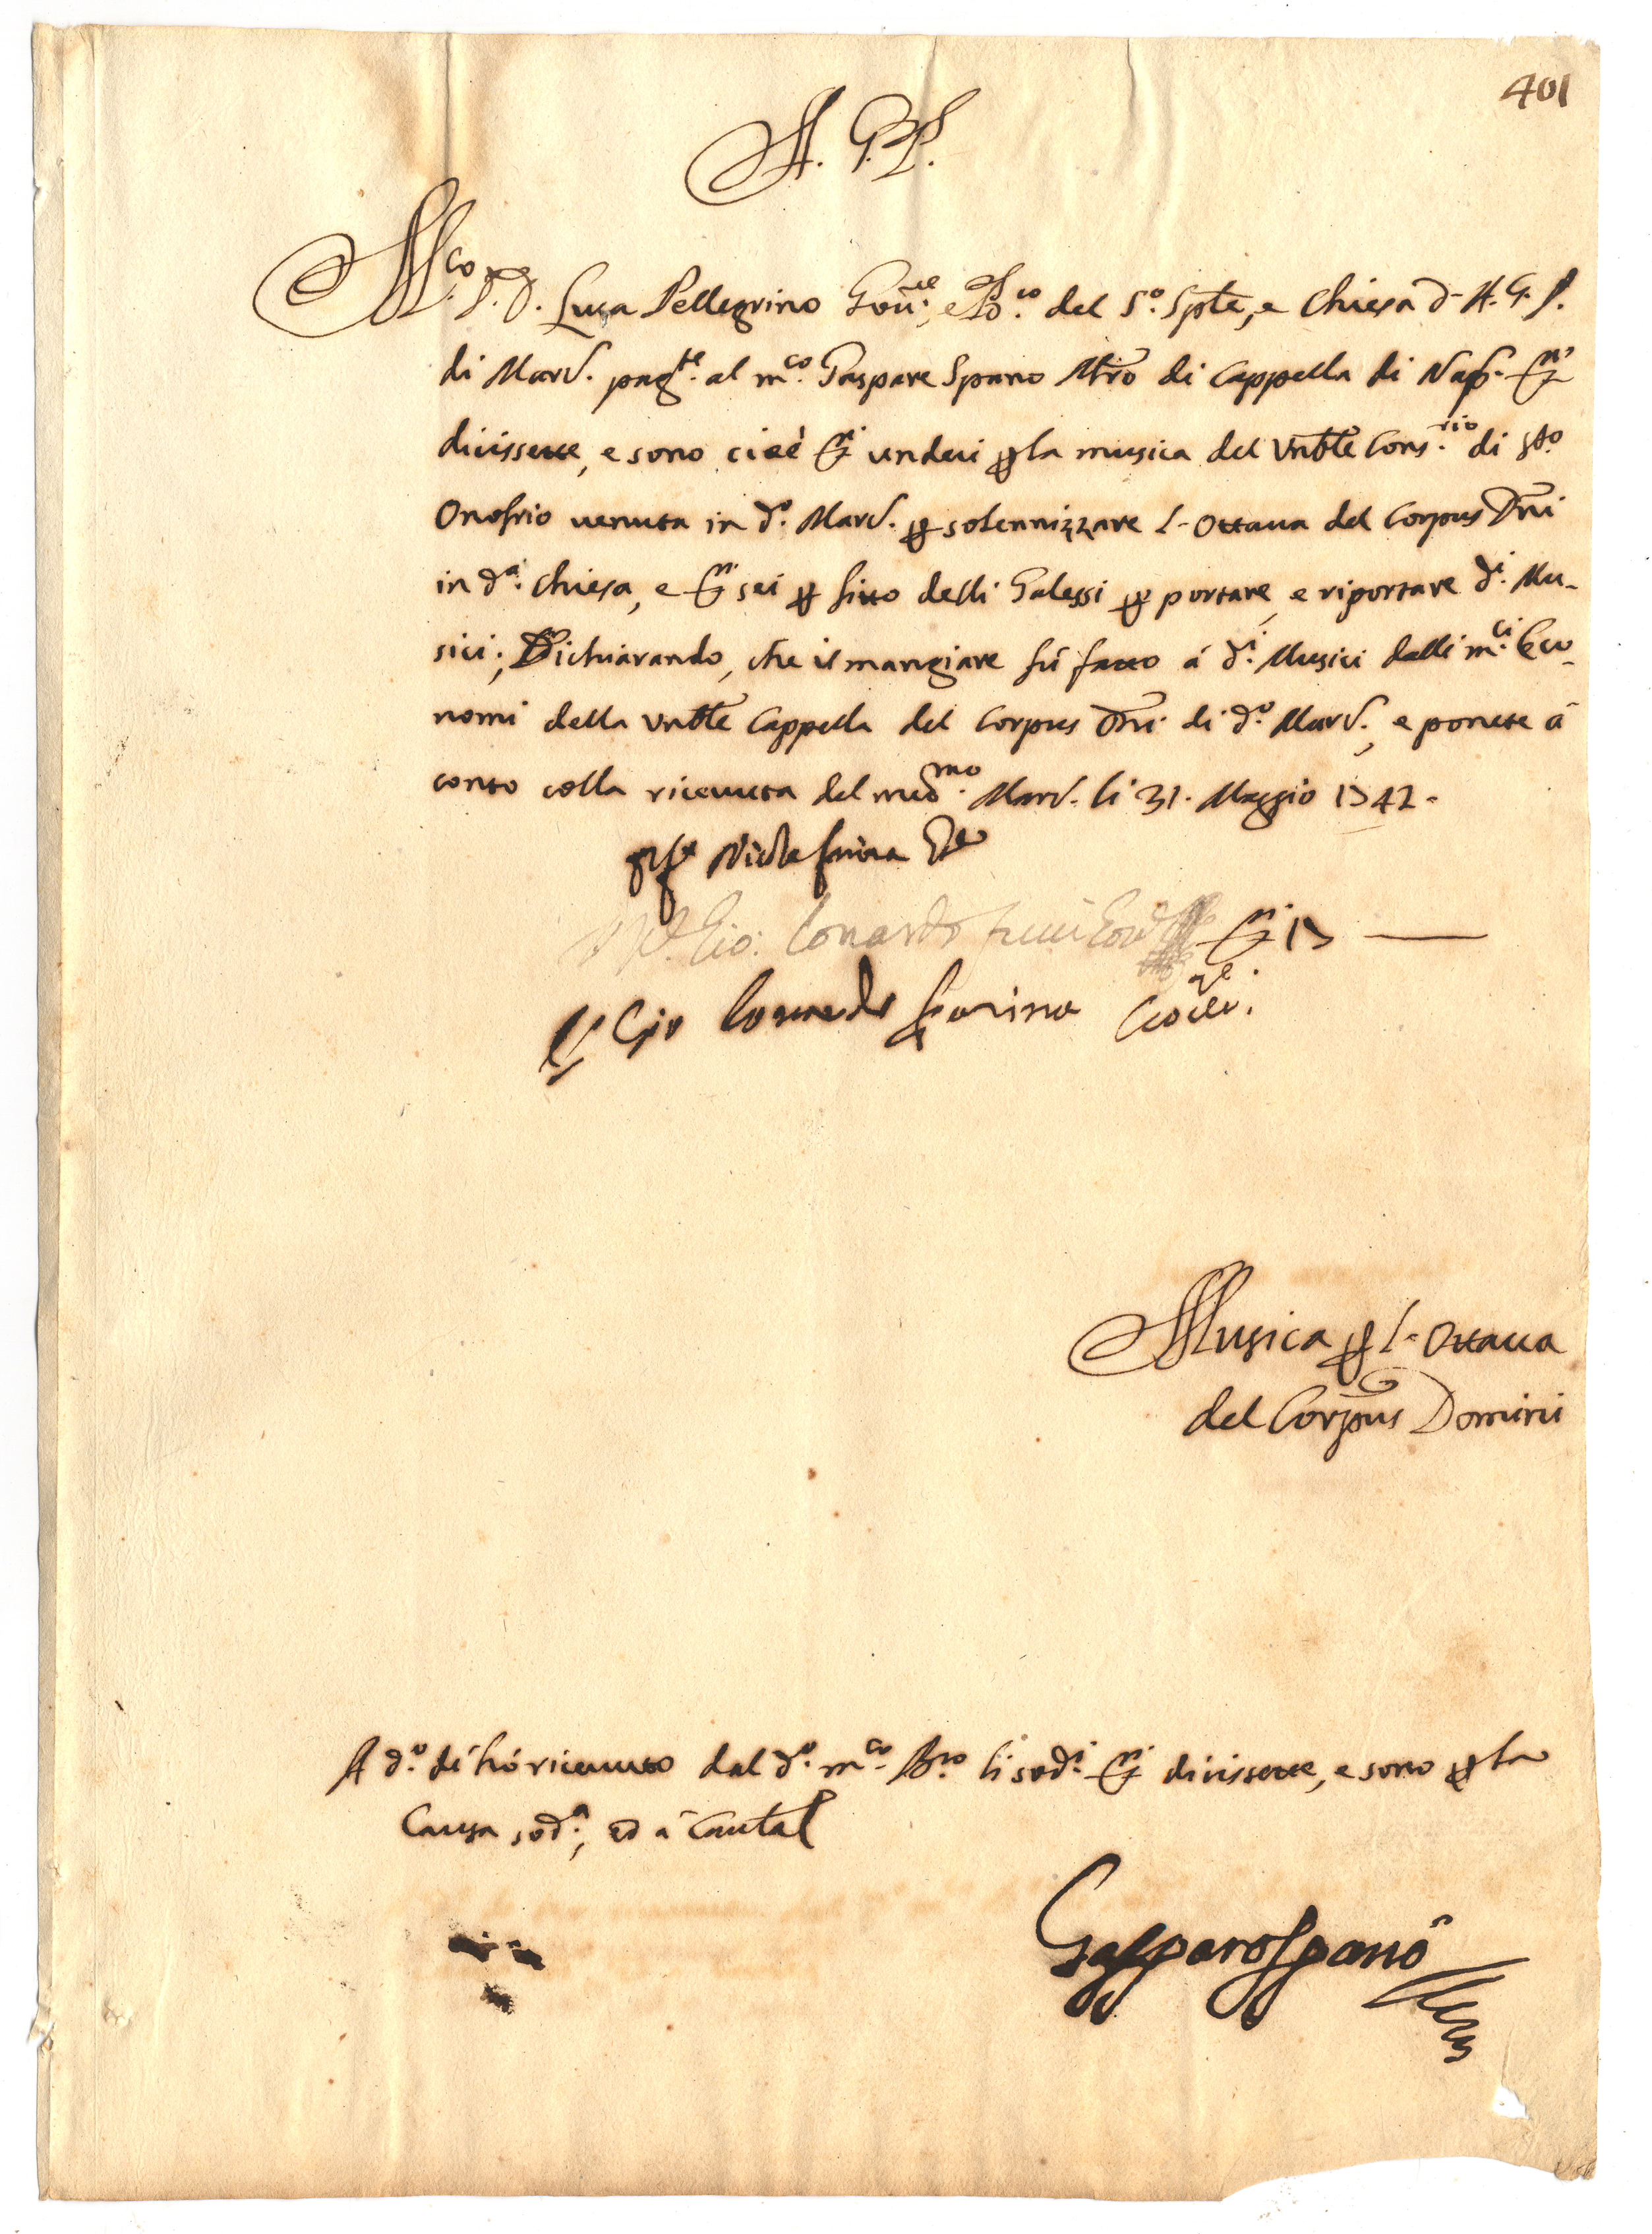 401
A. G. P.
M.co D. D. Luca Pellegrino Gov.re, e Bo.co del S.o Sple, e Chiesa d- A. G. P.
di Marc. pag.te al m.co Gaspare Spano Mro di Cappella di Nap. D.ni
dicissette, e sono cioè D.ni undeci p la musica del Vnble Cons.rio di Sto
Onofrio venuta in d.o Marc. p solennizzare l- Ottaua del Corpus Dni
in d.a Chiesa, e D.ni sei p fitto delli Galessi p portare, e riportare d.i Mu-
sici; Dichiarando, che il mangiare fù fatto á d.i Musici dalli m.ci Eco-
nomi della Vnble Cappella del Corpus Dni di d.o Marc., e ponete á
conto colla riceuuta del med.mo Marc. li 31. Maggio 1742.
Gio: Lonardo D.ni 17
Gio Lonardo Farina
Musica p l- Ottaua
del Corpus Domini
A d.o dí hò riceuuto dal d.o m.co Bro li sod.i D.ni dicissette, e sono p la
Causa sod.a, ed á Cautal
Gasparo Spanò